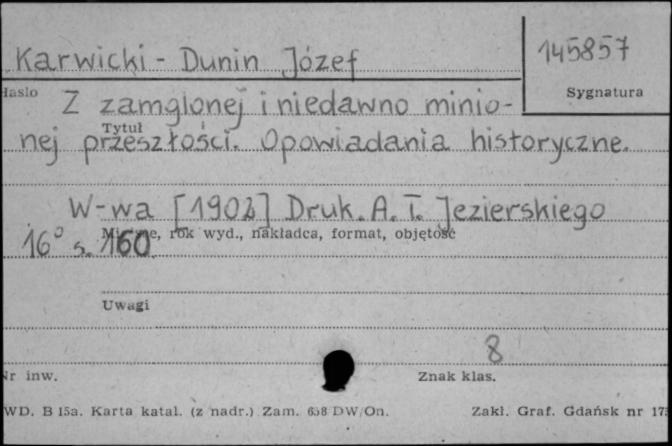 Karwicki - Dunin Józef
145857
Sygnatura
Hasło
Z zamglonej i niedawno minio-
Tytuł
nej przeszłości. Opowiadania historyczne.
W-wa [1902] Druk. A. T. Jezierskiego
Miejsce, rok wyd., nakładca, format, objętość
16° s. 160
Uwagi
8
Nr inw.
Znak klas.
WD. B 15a. Karta katal. (z nadr.) Zam. 658 DW/On.
Zakł. Graf. Gdańsk nr